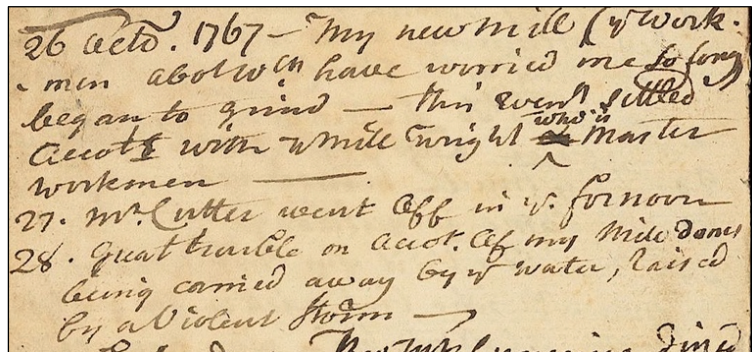 26 Octo. 1767 — My new mill (ye work-
men abot wch have worried me so long
began to grind — this Even'g settled
Accots with ye Mill wright who is Master
workmen —
27. Mr. Cutter went off in ye. fornoon
28. Great trouble on Accot. of my Mile dams
being carried away by ye water, raised
by a Violent Storm —
dined